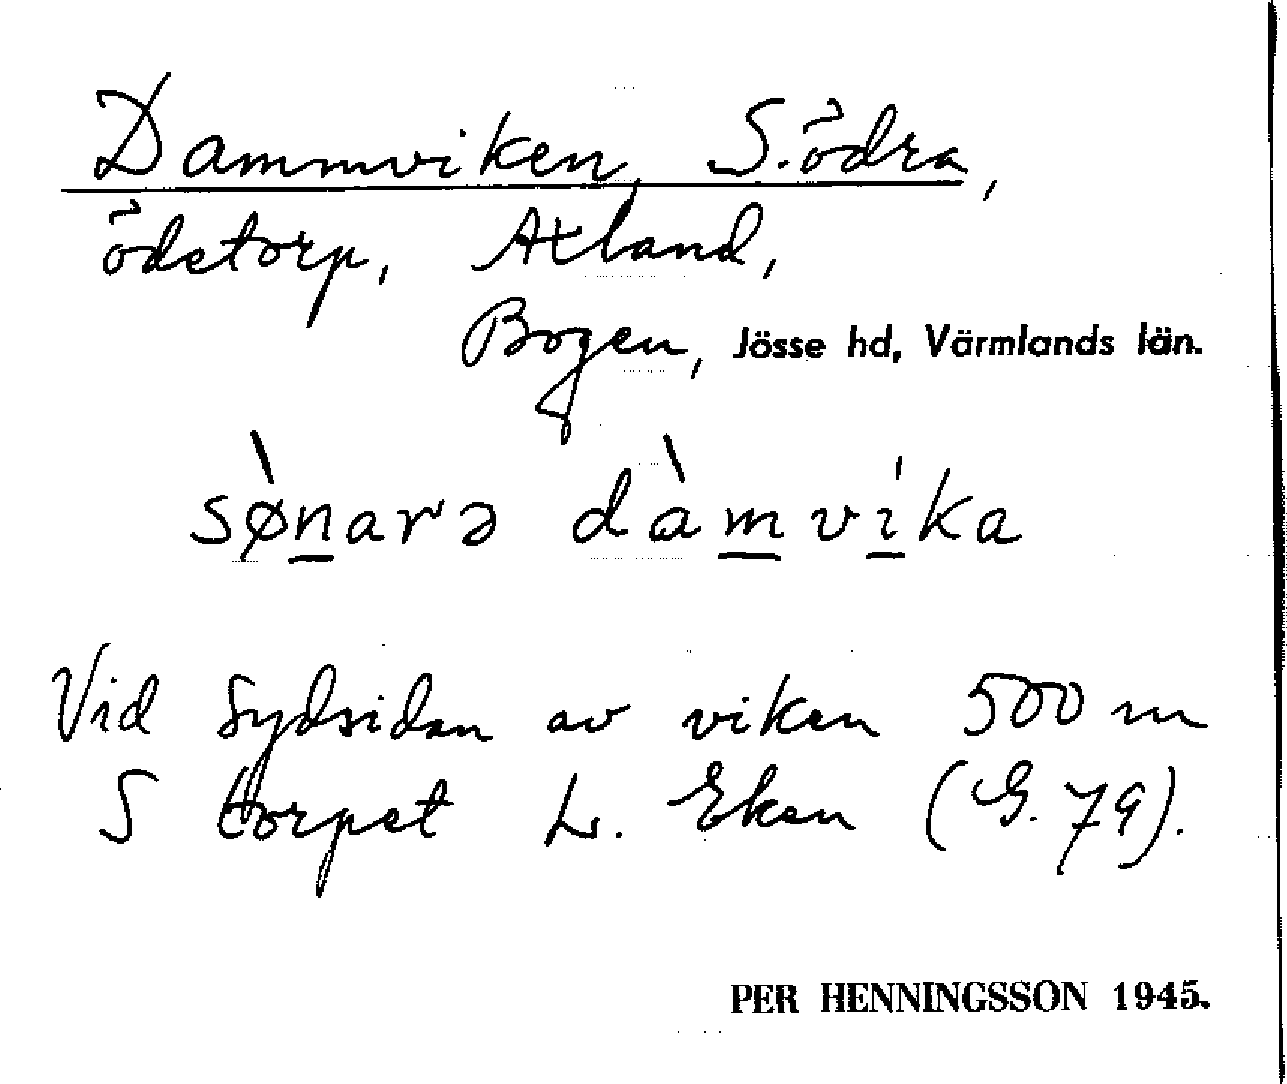 Dammviken, S.ödra,
ödetorp, Axland,
Bogen, Jösse hd, Värmlands län.
sø̀narə dàmvi̍ka
Vid Sydsidan av viken 500 m
S torpet L. Eken (G. 79).
PER HENNINGSSON 1945.